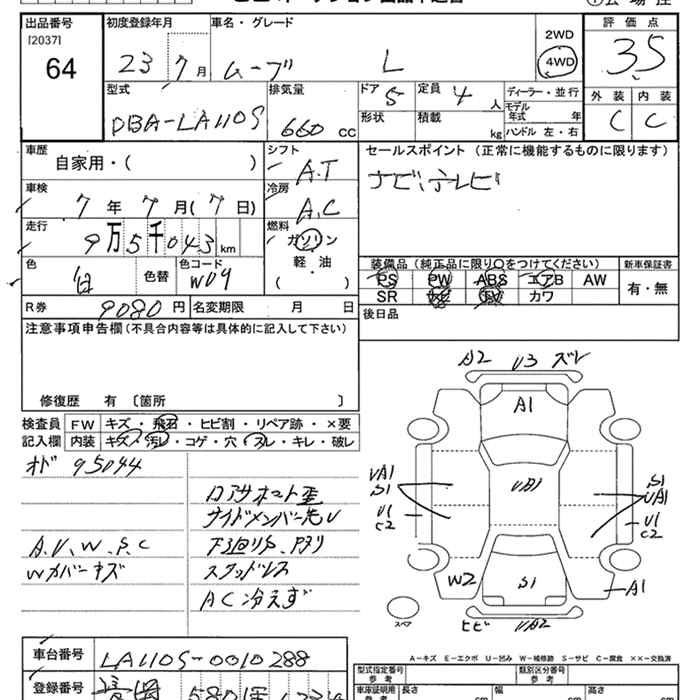 出品番号
[2037]
64
初度登録年月
23 7月
車名・グレード
ムーブ L
2WD
4WD
評価点
3.5
外装 内装
C C
型式
DBA-LA110S
排気量
660 cc
ドア
5
定員
4 人
形状
積載 kg
ディーラー・並行
モデル年式 年
ハンドル 左・右
車歴
自家用・( )
シフト
A.T
セールスポイント (正常に機能するものに限ります)
ナビ、テレビ
車検
7年 7月(7日)
冷房
A.C
走行
9万5千043km
燃料
ガソリン
軽・油
( )
色
白
色替
色コード
W09
装備品 (純正品に限り○をつけてください)
新車保証書
PS PW ABS エアB AW
SR ナビ TV カワ
有・無
R券
9080円
名変期限 月 日
後日品
注意事項申告欄(不具合内容等は具体的に記入して下さい)
修復歴 有 〔箇所 〕
検査員 FW キズ・飛石・ヒビ割・リペア跡・×要
記入欄 内装 キズ・汚レ・コゲ・穴・スレ・キレ・破レ
オド 95044
ロアサポート歪
サイドメンバー先U
A、U、W、S、C
下廻りS、Pサリ
Wカバーキズ
スタッドレス
AC冷えず
A2 U3 ズレ
A1
UA1
S1
UA1
S1
UA1
U1
C2
U1
C2
W2
S1
A1
スペア
ヒビ UA2
A-キズ E-エクボ U-凹み W-補修跡 S-サビ C-腐食 ××-交換済
車台番号
LA110S-0010288
型式指定番号
参考
類別区分番号
参考
登録番号
580
車庫証明用
参考
長さ cm
幅 cm
高さ cm